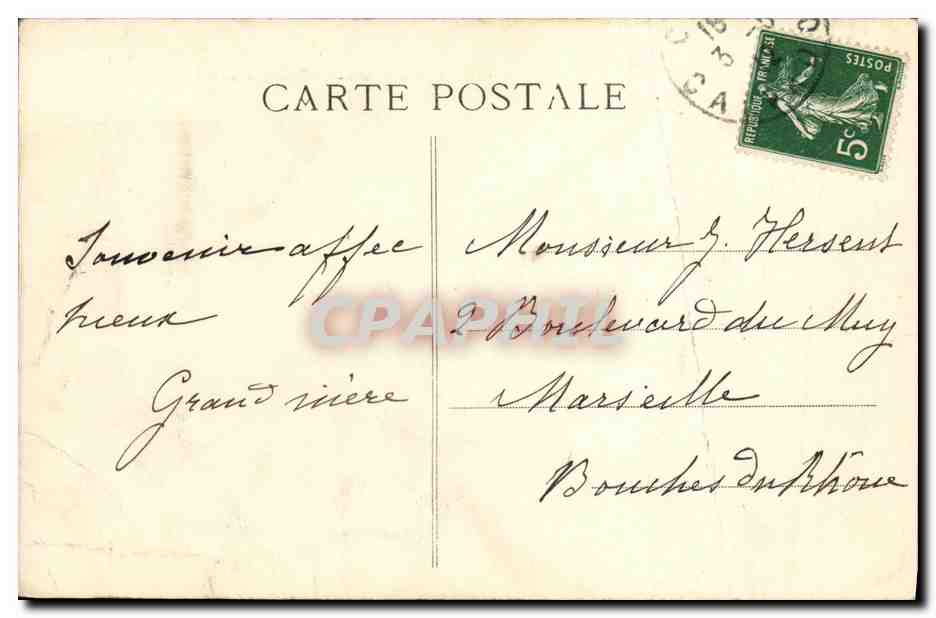 CARTE POSTALE
REPUBLIQUE FRANÇAISE
POSTES
5c
Souvenir affec
tueux
Grand mère
Monsieur J. Hersent
2 Boulevard du Muy
Marseille
Bouches du Rhône
CPAPHIL